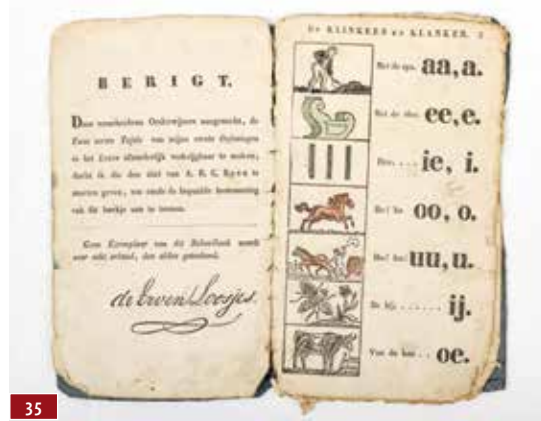 BERIGT.
Door verscheidene Onderwijzers aangezocht, de
Twee eerste Tafels van mijne eerste Oefeningen
in het Lezen afzonderlijk verkrijgbaar te maken,
dacht ik die den titel van A. B. C. Boek te
moeten geven, ten einde de bepaalde bestemming
van dit boekje aan te toonen.
Geen Exemplaar van dit Schoolboek wordt
voor echt erkend, dan aldus geteekend.
de Erven Loosjes.
De KLINKERS en KLANKEN. 3
Met de spa. aa, a.
Met de slee. ee, e.
Drie.... ie, i.
Ho! ho oo, o.
Hu! hu! uu, u.
De bij...... ij.
Van de koe.. oe.
35